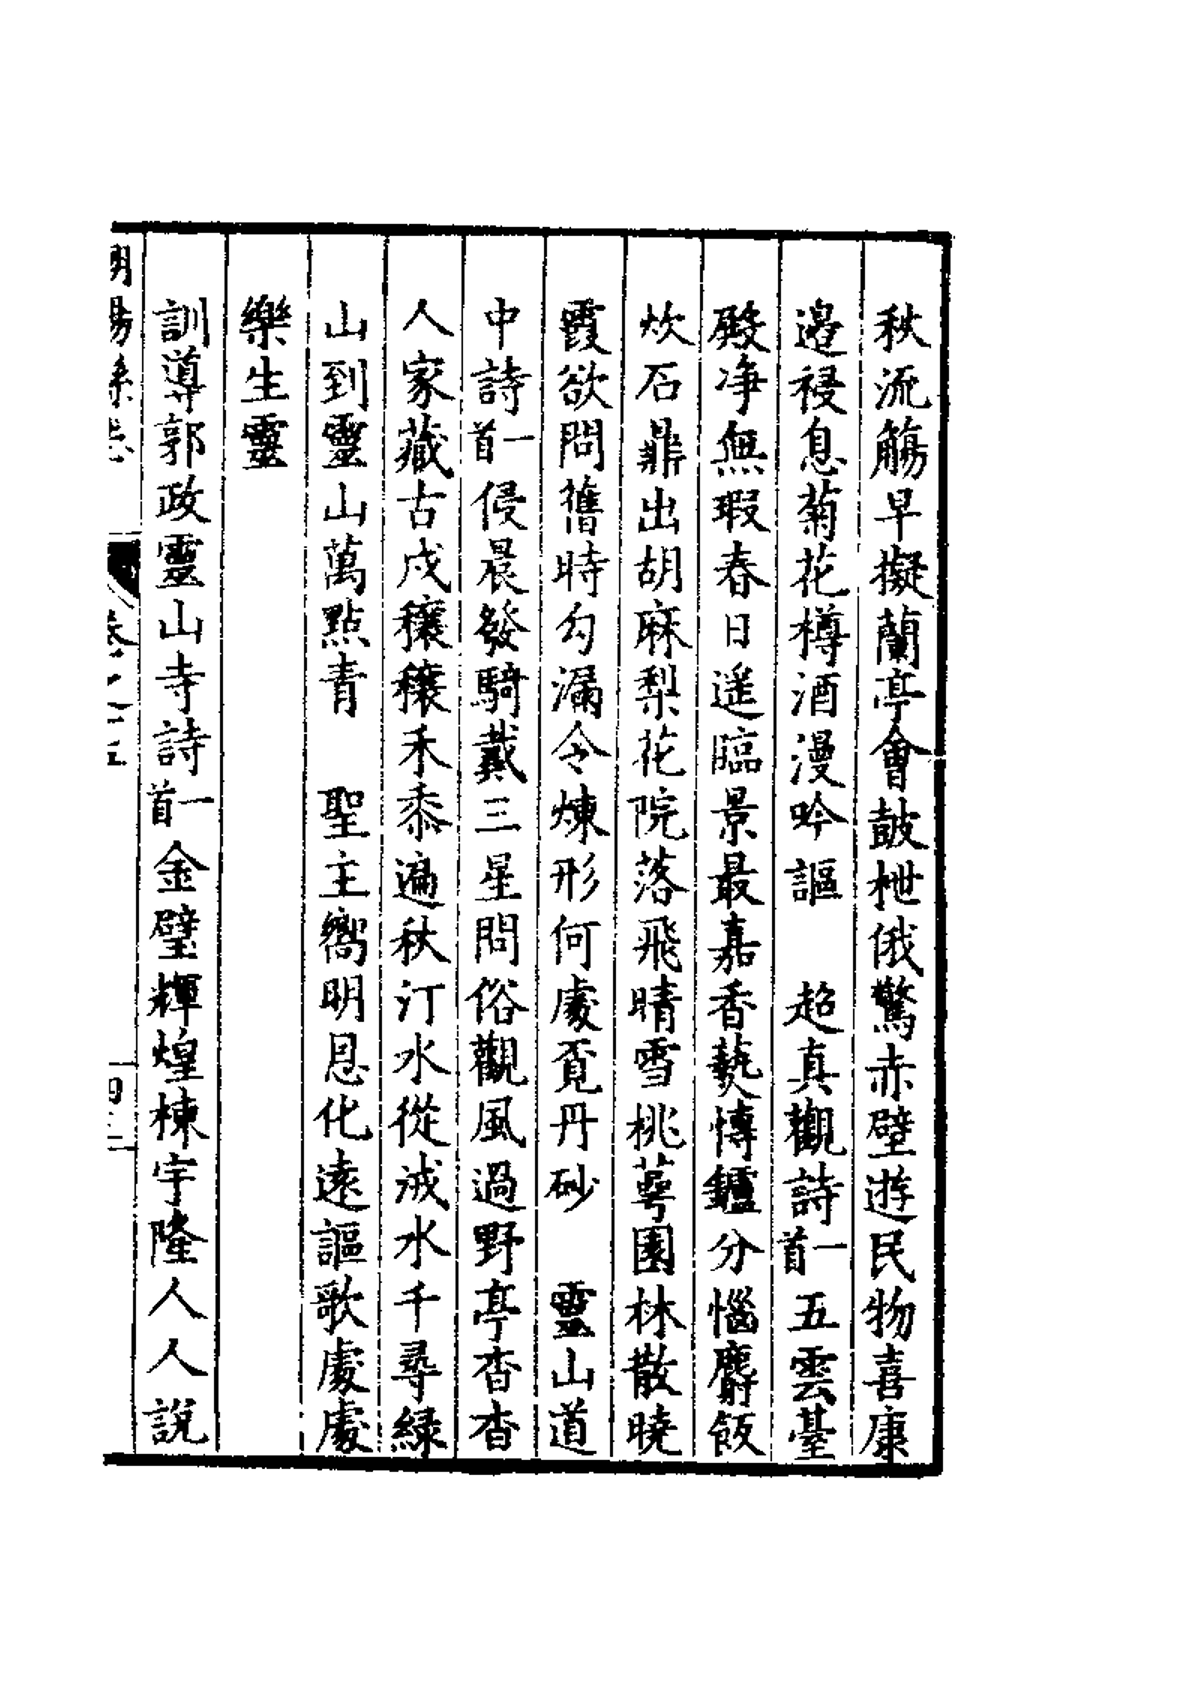 秋流觴早擬蘭亭會鼓枻俄驚赤壁遊民物喜康
邊祲息菊花樽酒漫吟謳　超真觀詩一首五雲臺
殿净無瑕春日遥臨景最嘉香爇慱鑪分惱麝飯
炊石鼎出胡麻梨花院落飛晴雪桃萼園林散曉
霞欲問舊時勾漏令煉形何處覔丹砂　靈山道
中詩一首侵晨發騎戴三星問俗觀風過野亭杳杳
人家藏古戍穰穰禾黍遍秋汀水從淢水千尋緑
山到靈山萬點青　聖主嚮明恩化遠謳歌處處
樂生靈
訓導郭政靈山寺詩一首金璧輝煌棟宇隆人人説